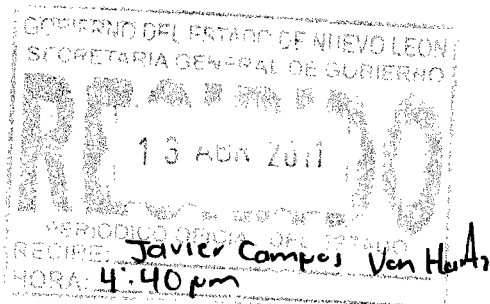 GOBIERNO DEL ESTADO DE NUEVO LEON
SECRETARIA GENERAL DE GOBIERNO
RECIBIDO
13 ABR 2011
PERIODICO OFICIAL DEL ESTADO
RECIBE: Javier Campos Von
HORA: 4:40 pm